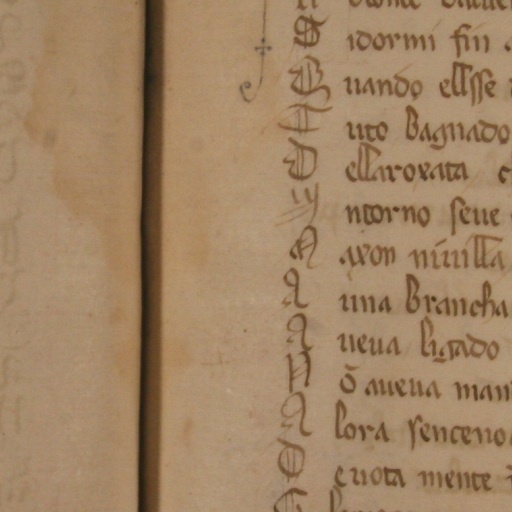 idormi fin
Quando ellsse
Tuto bagnado
Dellaroxata c
Intorno seue
Axon niuilla
A una brancha
Aueua ligado
Nō aueua man
Alora senceno
Deuota mente